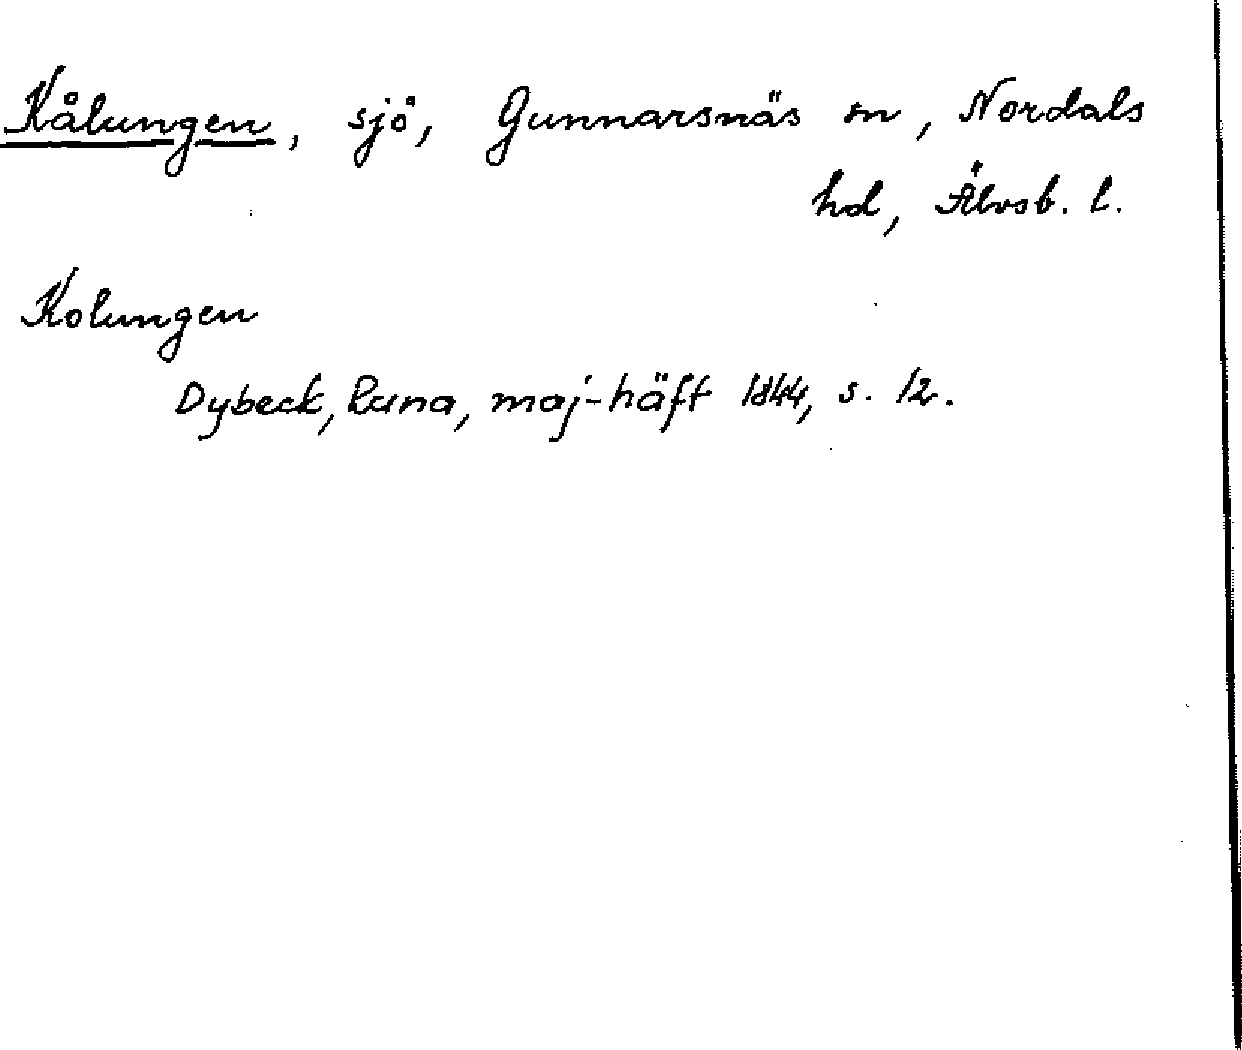 Kålungen, sjö, Gunnarsnäs sn, Nordals
hd, Älvsb. l.
Kolungen
Dybeck, Runa, maj-häft 1844, s. 12.